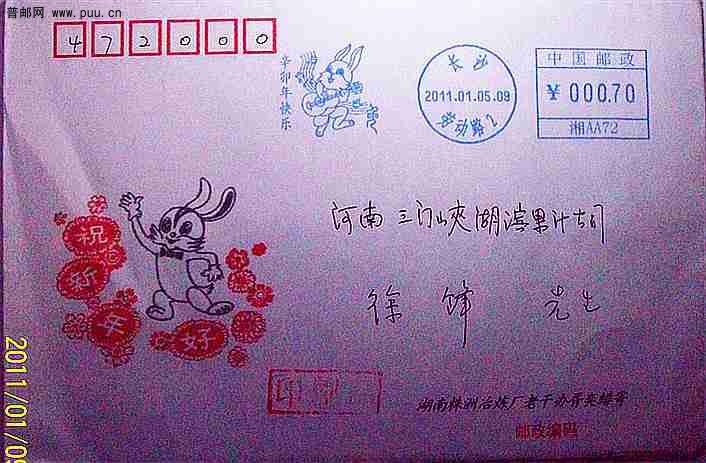 普邮网 www.puu.cn
472000
辛卯年快乐
长沙
2011.01.05.09
劳动路2
中国邮政
¥ 000.70
湘AA72
河南三门峡湖滨果汁公司
徐锋 先生
祝
新
年
好
印
湖南株洲冶炼厂老干办
邮政编码
2011/01/09